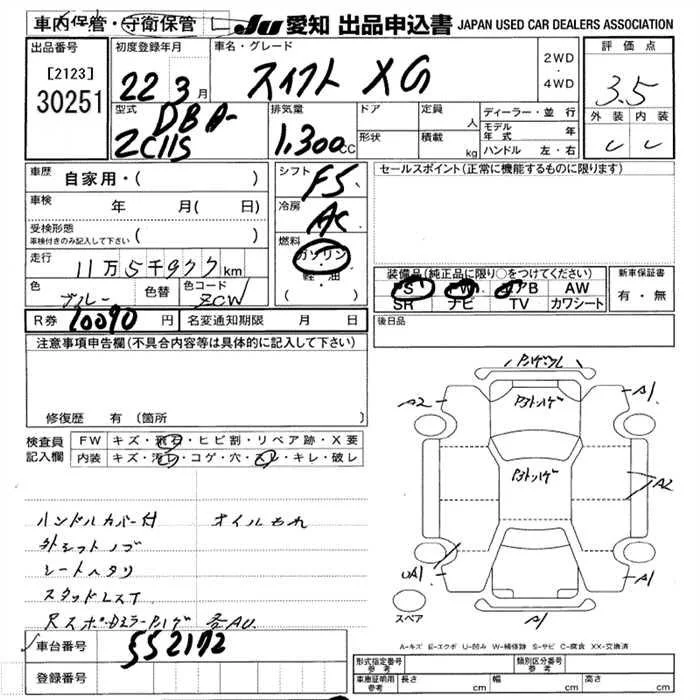 車内保管・守衛保管 JU 愛知 出品申込書 JAPAN USED CAR DEALERS ASSOCIATION
出品番号 初度登録年月 車名・グレード 2WD ・ 4WD 評価点
[2123] 30251 22年 3月 スイフト XG 3.5
型式 DBA- ZC11S 排気量 1,300cc ドア 定員 人 ディーラー・並行
形状 積載 kg モデル年式 年
ハンドル 左・右
外装 内装
C C
車歴 自家用・( )
シフト F5
セールスポイント(正常に機能するものに限ります)
車検 年 月(日)
冷房 AC
受検形態 車検付きのみ記入して下さい ( )
燃料 ガソリン 軽・油
走行 11万5千977km
装備品(純正品に限り○をつけてください) 新車保証書
色 ブルー 色替 色コード ZCW
PS PW エアB AW 有・無
SR ナビ TV カワシート
R券 10090円 名変通知期限 月 日
後日品
注意事項申告欄(不具合内容等は具体的に記入して下さい)
修復歴 有(箇所
検査員記入欄 FW キズ・飛石・ヒビ割・リペア跡・X要
内装 キズ・汚レ・コゲ・穴・スレ・キレ・破レ
ハンドルカバー付 オイルもれ
社外シフトノブ
シートヘタリ
スタッドレスT
各AU
A2
A1
A2
UA1
A1
A1
スペア
A-キズ E-エクボ U-凹み W-補修跡 S-サビ C-腐食 XX-交換済
車台番号 552172
登録番号
形式指定番号 参考 類別区分番号 参考
車庫証明用 参考 長さ cm 幅 cm 高さ cm